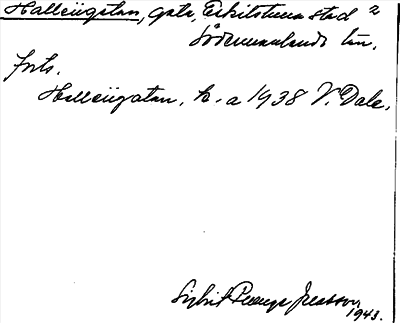 Halleiigatan, gata, Eskilstuna stad 2
Södermanlands län.
forts.
Halleiigatan. k. a 1938 V. Dale.
Sigbrit
1943.